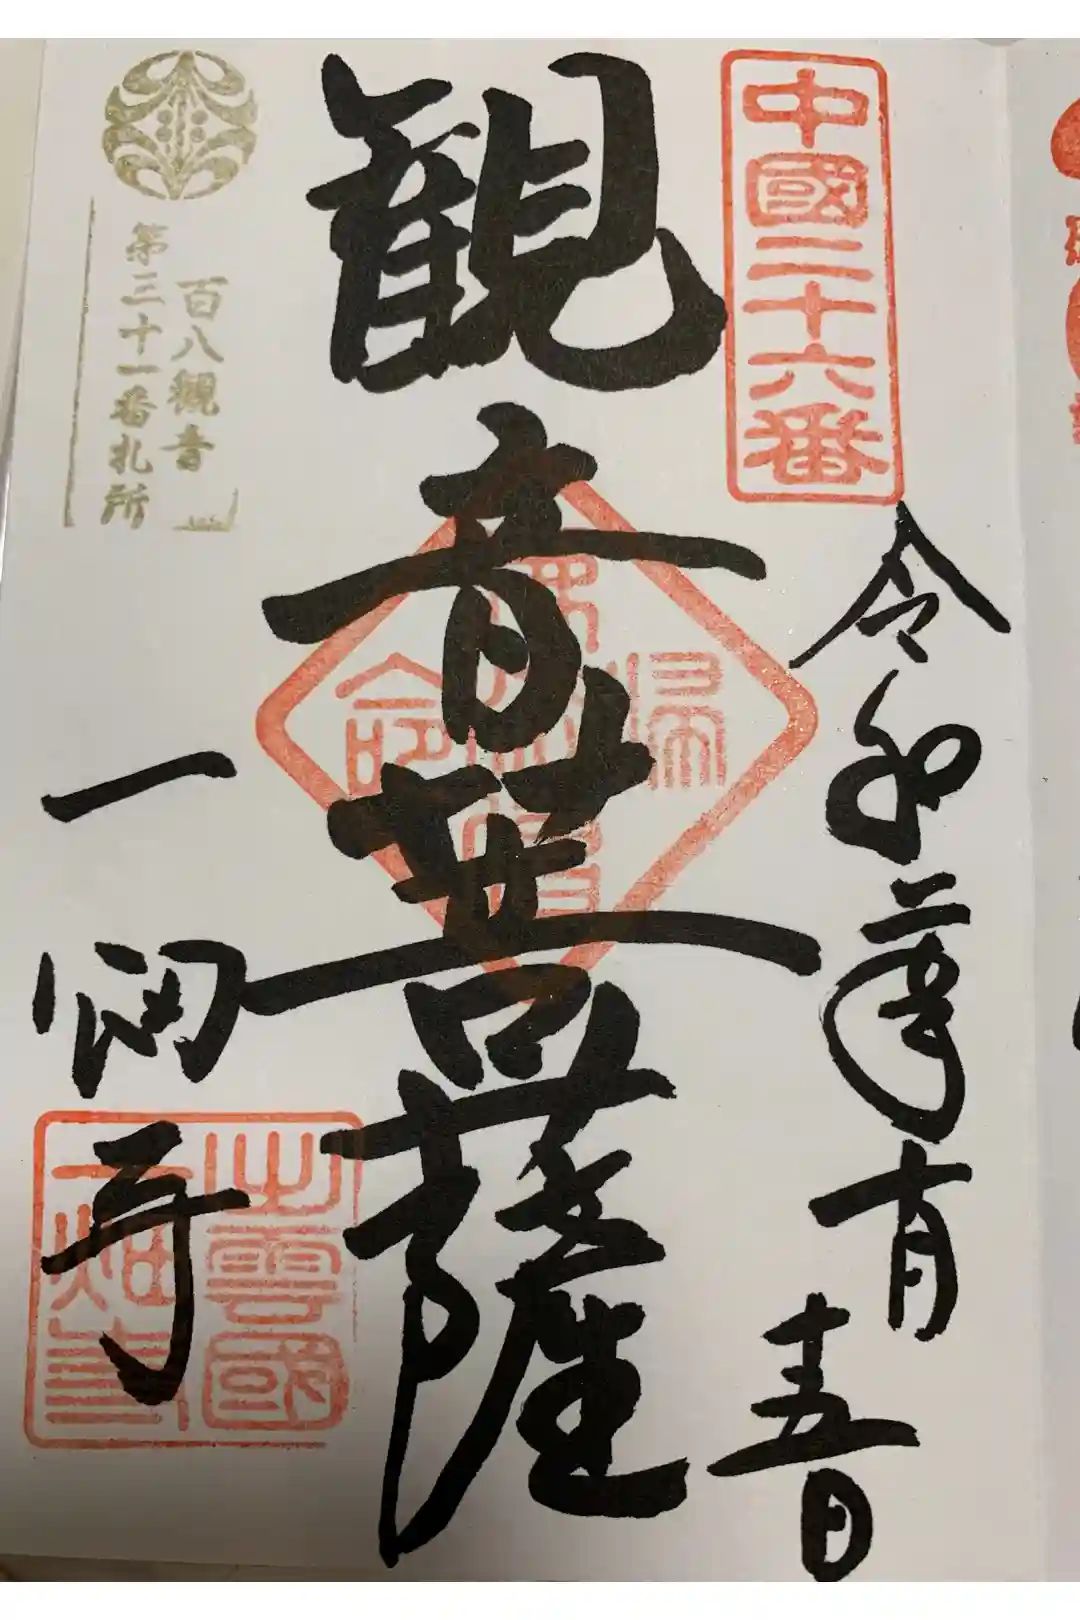 中國二十六番
令和二年十月十五日
観音菩薩
帰
命
百八観音
第三十一番札所
一畑寺
出雲國
一畑寺